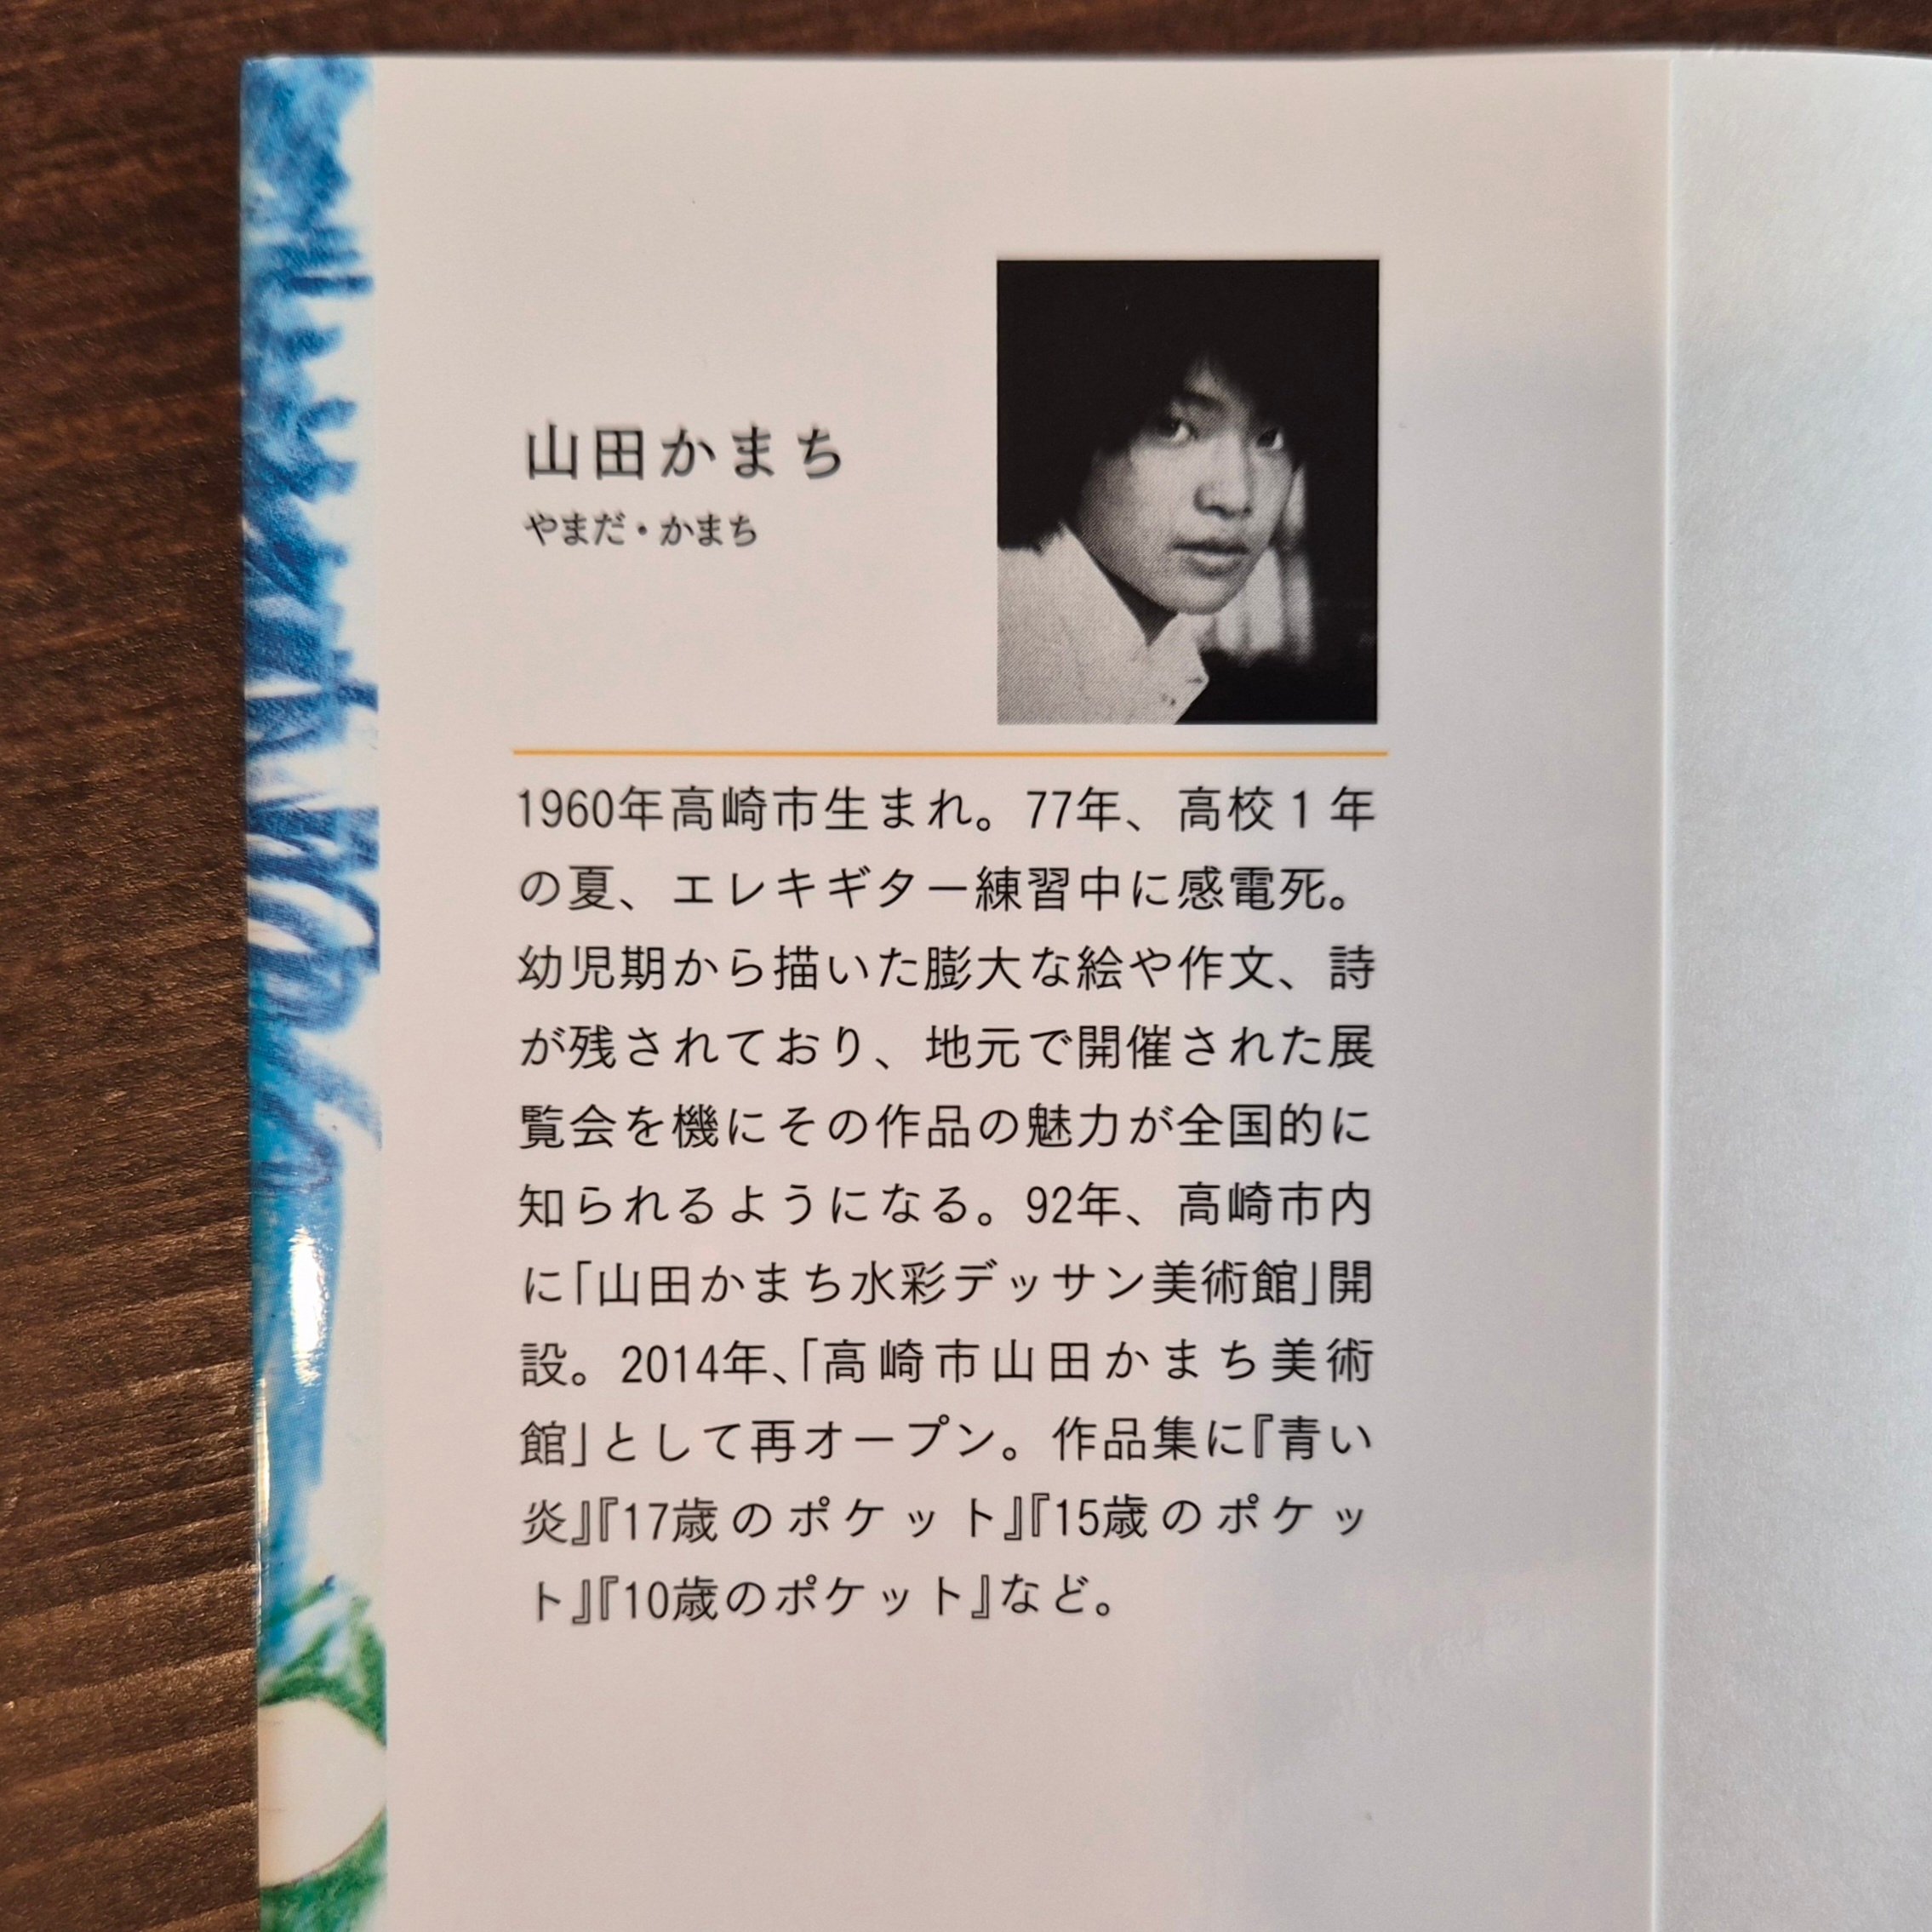 山田かまち
やまだ・かまち
1960年高崎市生まれ。77年、高校1年
の夏、エレキギター練習中に感電死。
幼児期から描いた膨大な絵や作文、詩
が残されており、地元で開催された展
覧会を機にその作品の魅力が全国的に
知られるようになる。92年、高崎市内
に「山田かまち水彩デッサン美術館」開
設。2014年、「高崎市山田かまち美術
館」として再オープン。作品集に『青い
炎』『17歳のポケット』『15歳のポケッ
ト』『10歳のポケット』など。